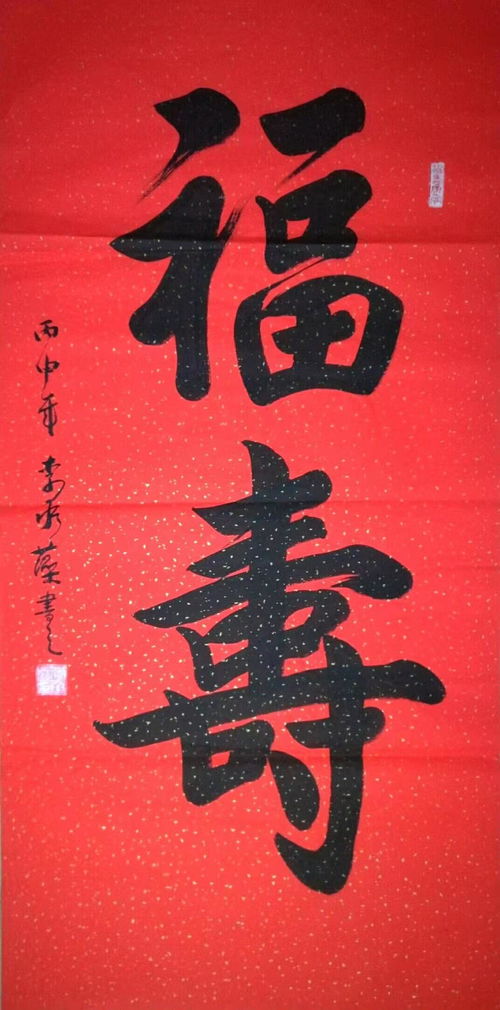 福壽
丙申年 李永藻書之